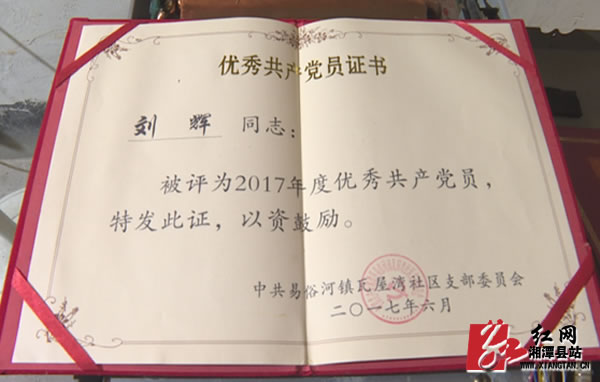 优秀共产党员证书
刘辉 同志：
被评为2017年度优秀共产党员，
特发此证，以资鼓励。
中共易俗河镇瓦屋湾社区支部委员会
二〇一七年六月
红网
湘潭县站
WWW.XIANGTAN.CN